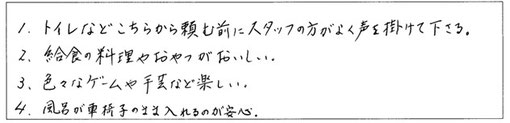 1. トイレなどこちらから頼む前にスタッフの方がよく声を掛けて下さる。
2. 給食の料理やおやつがおいしい。
3、色々なゲームや手芸など楽しい。
4. 風呂が車椅子のまま入れるのが安心。